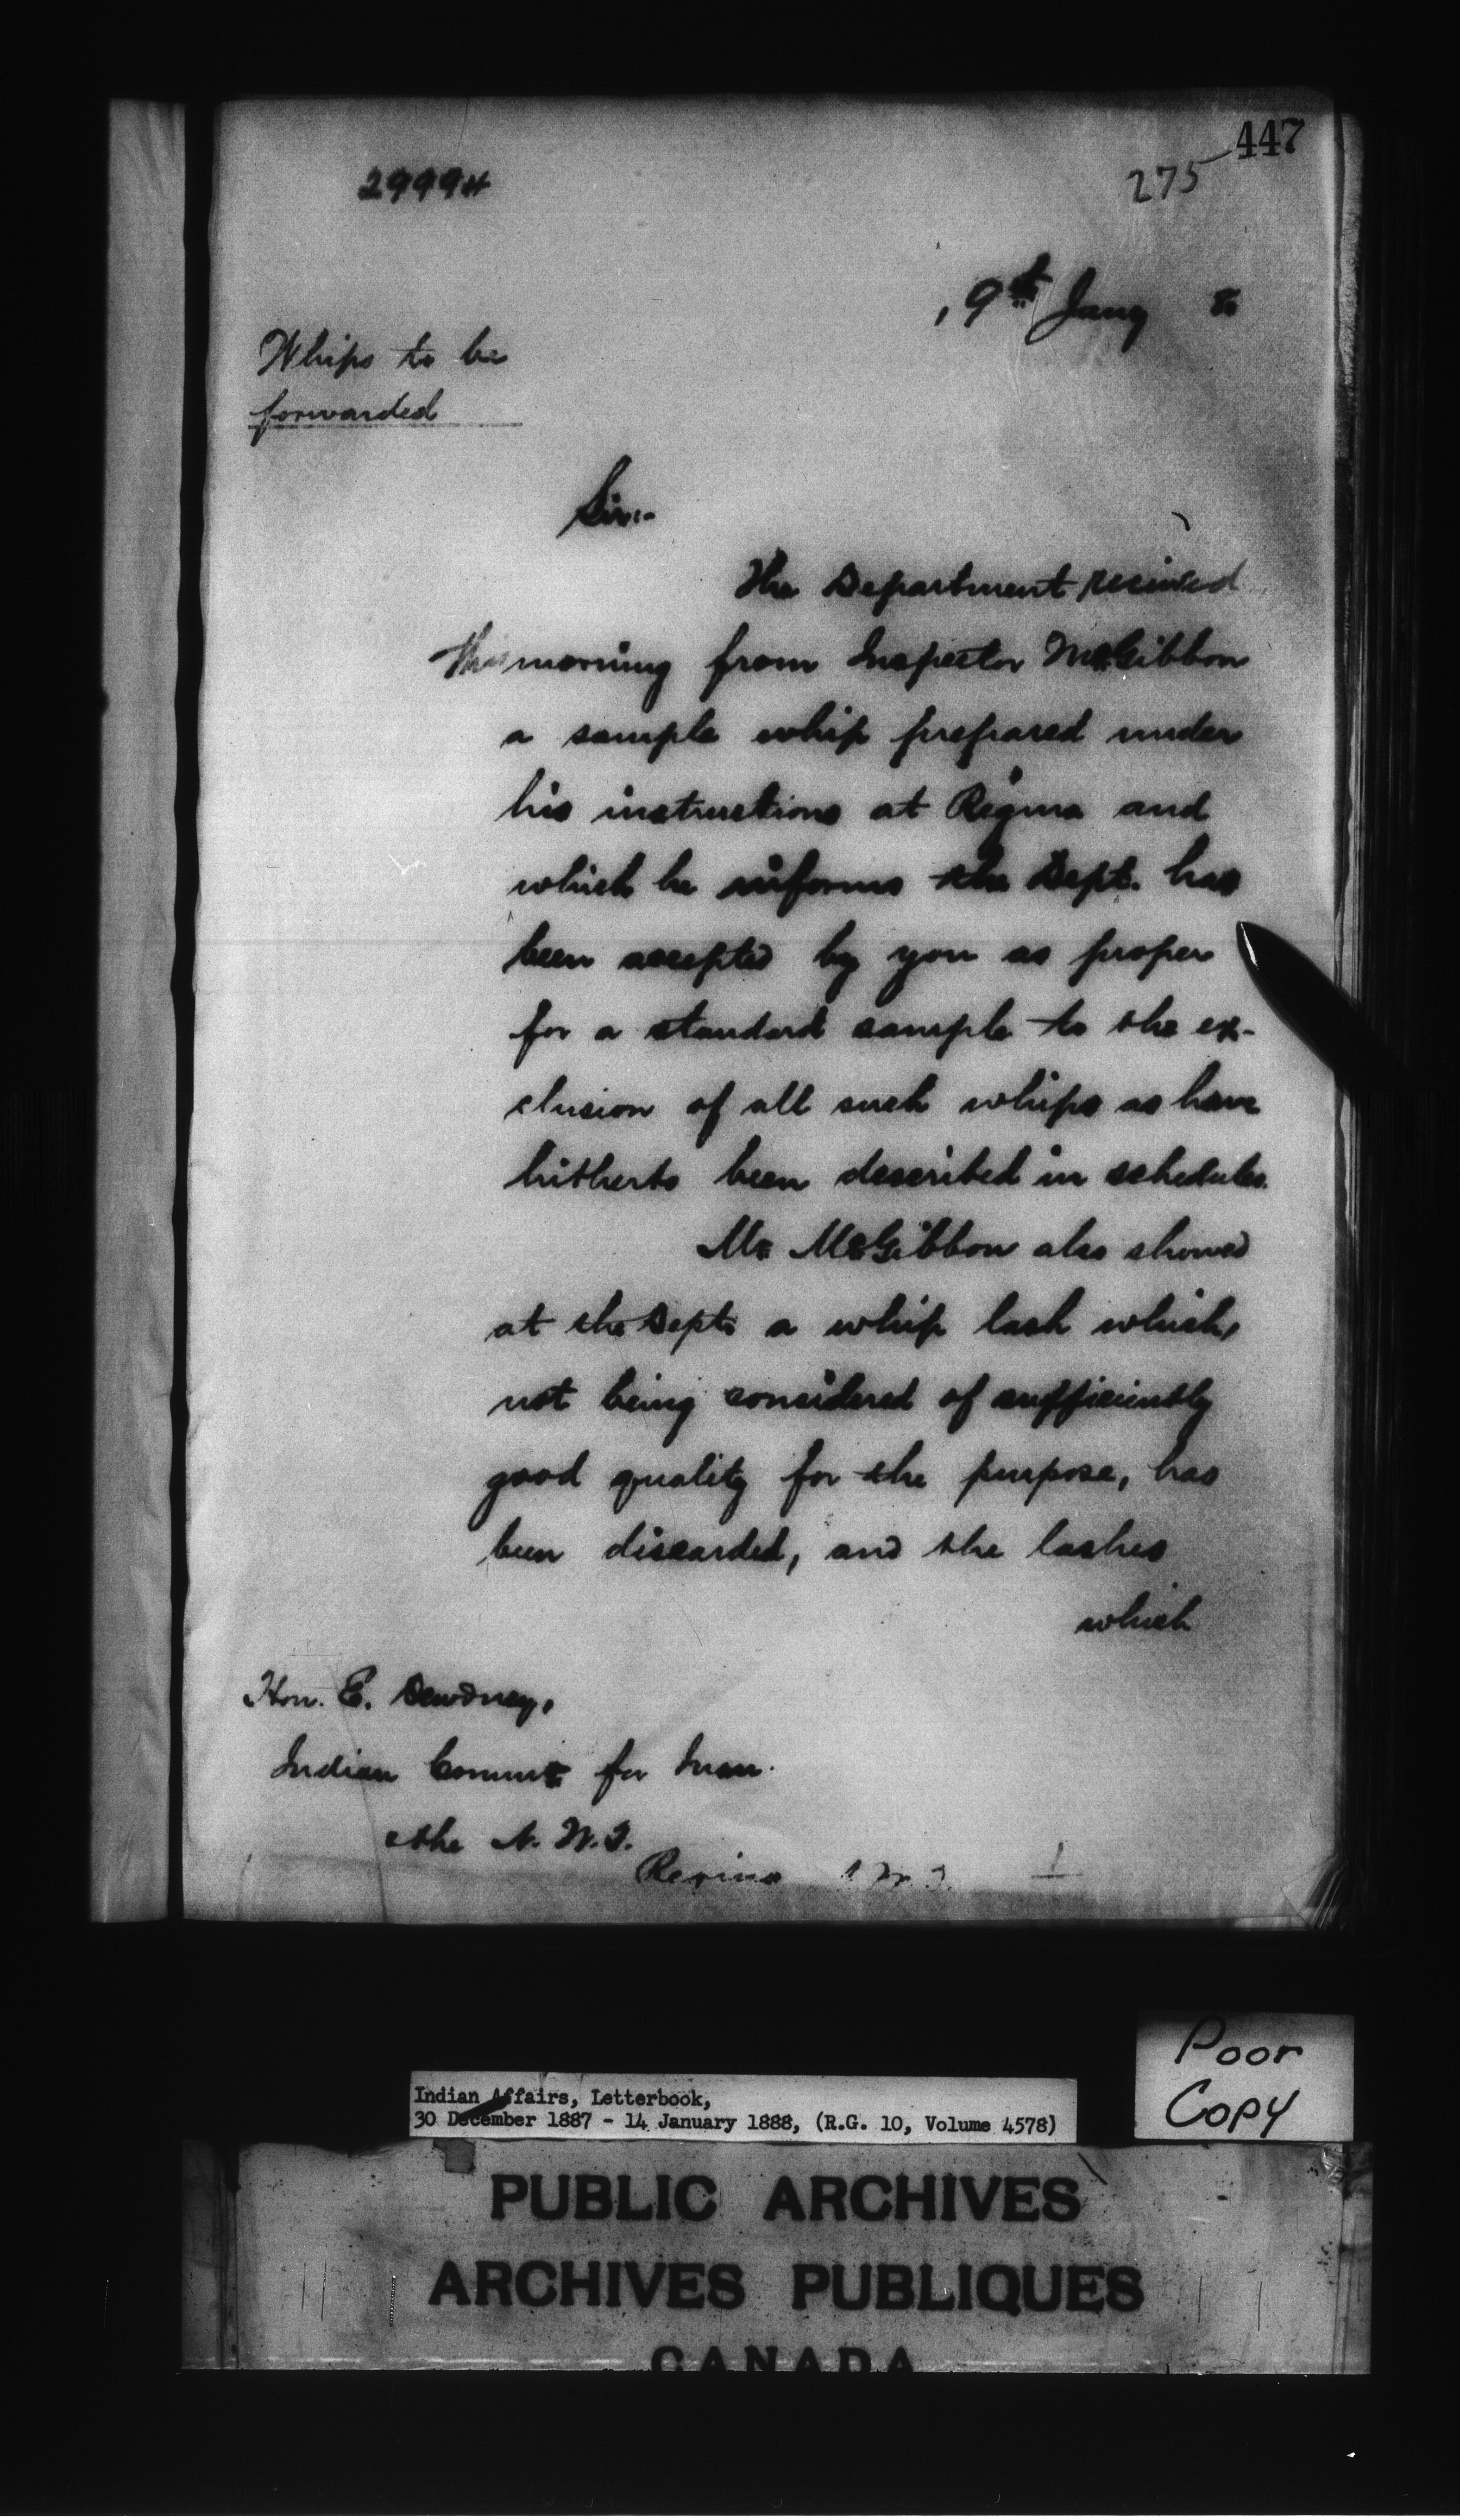 447
275
, 9th Jany 8
Whips to be
forwarded
Sir:-
The Department received
this morning from Inspector McGibbon
a sample whip prepared under
his instructions at Regina and
which he informs the Dept. has
been accepted by you as proper
for a standard sample to the ex-
clusion of all such whips as have
hitherto been described in schedules.
Mr McGibbon also showed
at the Dept. a whip lash which,
not being considered of sufficiently
good quality for the purpose, has
been discarded, and the lashes
which
Hon. E. Dewdney,
Indian Commr for Man.
& the N. W. T.
Regina N.W.T.
Poor
Copy
Indian Affairs, Letterbook,
30 December 1887 - 14 January 1888, (R.G. 10, Volume 4578)
PUBLIC ARCHIVES
ARCHIVES PUBLIQUES
CANADA